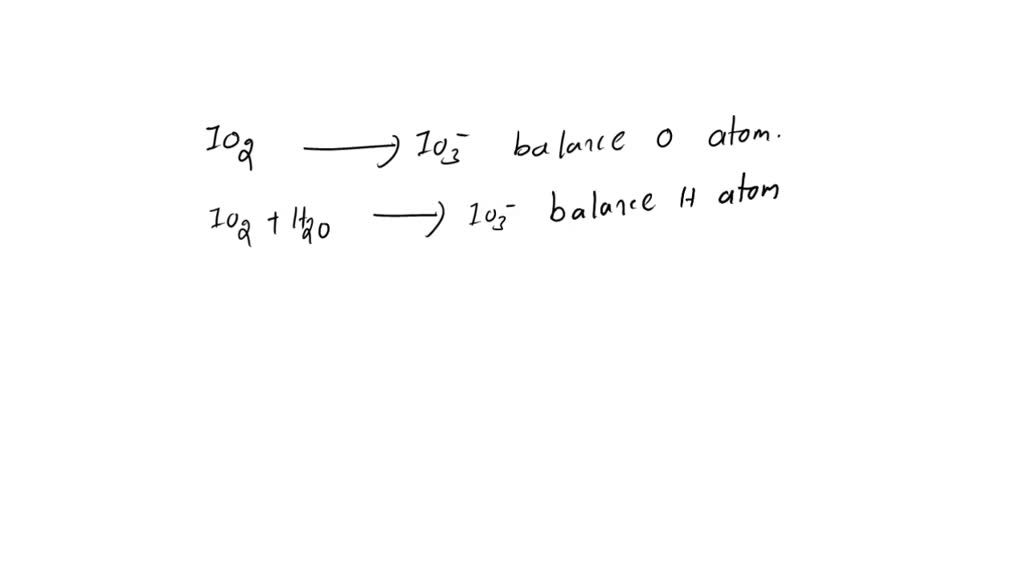 IO₂ ⟶ IO₃⁻ balance O atom.
IO₂ + H₂O ⟶ IO₃⁻ balance H atom